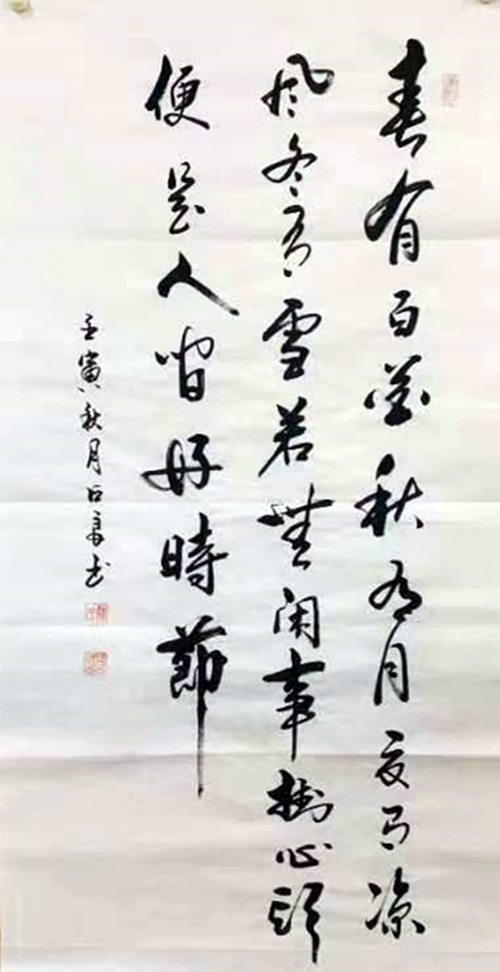 春有百花秋有月夏有凉
风冬有雪若無闲事掛心頭
便是人间好時節
壬寅秋月石書